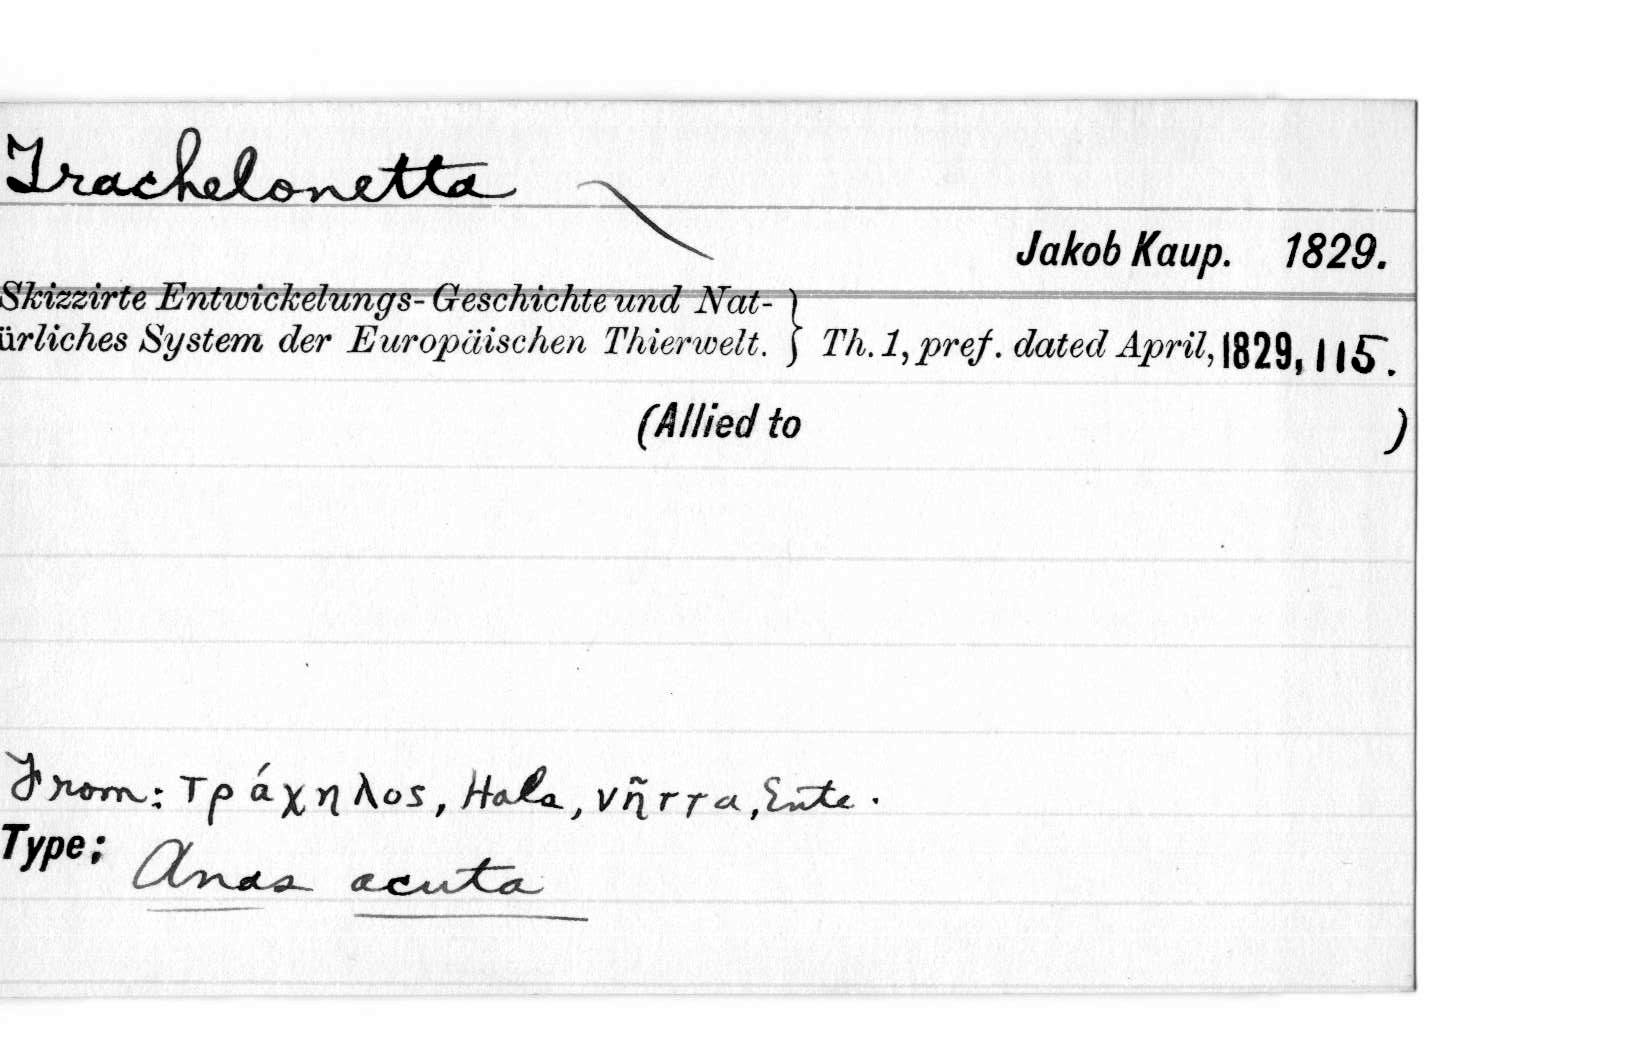 Trachelonetta
Jakob Kaup. 1829.
Skizzirte Entwickelungs-Geschichte und Nat-
ürliches System der Europäischen Thierwelt. } Th. 1, pref. dated April, 1829, 115.
(Allied to )
From: τράχηλος, Hals, νῆττα, Ente.
Type: Anas acuta